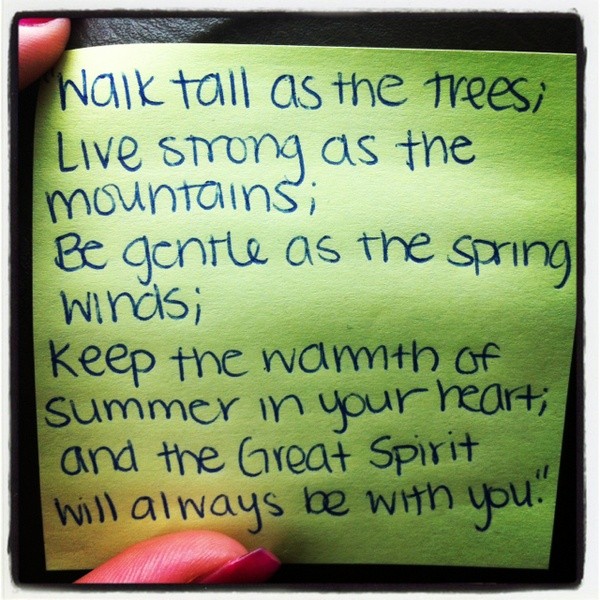 "Walk tall as the trees;
Live strong as the
mountains;
Be gentle as the spring
winds;
Keep the warmth of
summer in your heart;
and the Great Spirit
will always be with you."